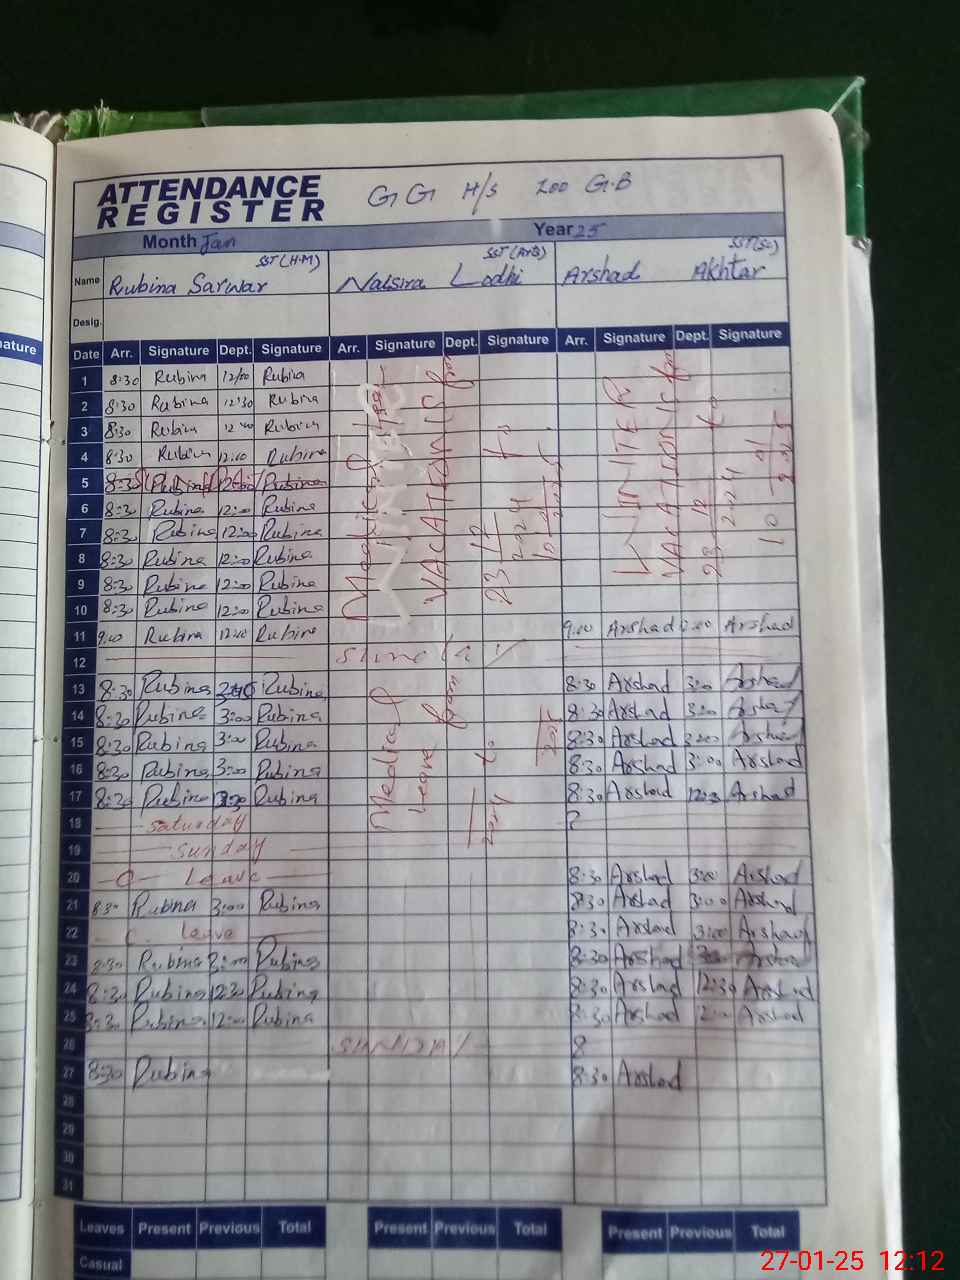 ature
ATTENDANCE
REGISTER
GG H/S 200 G.B
Month Jan Year 25
SST (H.M) SST (Arts) SST (Sc)
Name Rubina Sarwar Naisira Lodhi Arshad Akhtar
Desig.
Date Arr. Signature Dept. Signature Arr. Signature Dept. Signature Arr. Signature Dept. Signature
1 8:30 Rubina 12:00 Rubina
2 8:30 Rubina 12:30 Rubina
3 8:30 Rubina 12:40 Rubina
4 8:30 Rubina 12:00 Rubina
5 8:30 Rubina 12:00 Rubina
6 8:30 Rubina 12:00 Rubina
7 8:30 Rubina 12:00 Rubina
8 8:30 Rubina 12:00 Rubina
9 8:30 Rubina 12:00 Rubina
10 8:30 Rubina 12:00 Rubina
Medical
VACATIONS from
23 12 2024 to
10
WINTER
VACATIONS from
23 12 2024 to
10
11 9:00 Rubina 12:00 Rubina 9:00 Arshad Arshad
12 Sunday
13 8:30 Rubina Rubina 8:30 Arshad 3:00 Arshad
14 8:30 Rubina 3:00 Rubina 8:30 Arshad 3:00 Arshad
15 8:30 Rubina 3:00 Rubina 8:30 Arshad 3:00 Arshad
16 8:30 Rubina 3:00 Rubina 8:30 Arshad 3:00 Arshad
17 8:30 Rubina Rubina 8:30 Arshad 12:3 Arshad
Medical from
Leave to
2024
2025
18 Saturday
19 Sunday
20 C Leave 8:30 Arshad 3:00 Arshad
21 8:30 Rubina 3:00 Rubina 8:30 Arshad 3:00 Arshad
22 C. leave 8:30 Arshad 3:00 Arshad
23 8:30 Rubina 3:00 Rubina 8:30 Arshad Arshad
24 8:30 Rubina 12:30 Rubina 8:30 Arshad 12:30 Arshad
25 8:30 Rubina 12:00 Rubina 8:30 Arshad 12:00 Arshad
26 SUNDAY 8
27 8:30 Rubina 8:30 Arshad
28
29
30
31
Leaves Present Previous Total Present Previous Total Present Previous Total
Casual
27-01-25 12:12